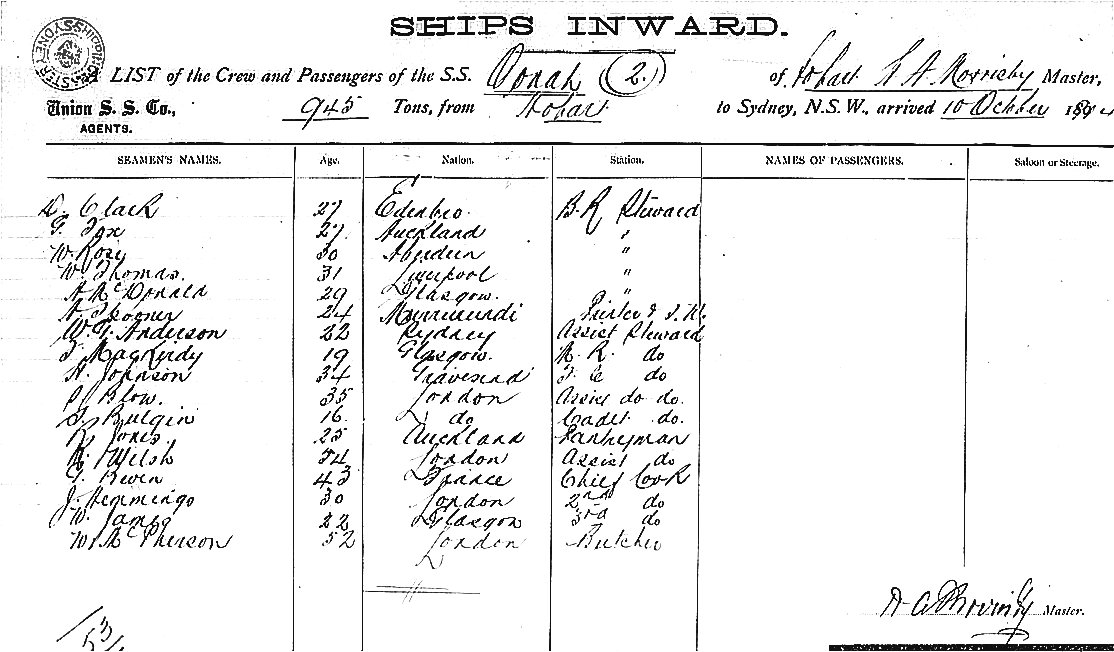 SHIPS INWARD.
SHIPPING MASTER SYDNEY
LIST of the Crew and Passengers of the S.S. Oonah (2.) of Hobart Master,
Union S. S. Co., 945 Tons, from Hobart to Sydney, N.S.W., arrived 10 October 1894
AGENTS.
SEAMEN'S NAMES. Age. Nation. Station. NAMES OF PASSENGERS. Saloon or Steerage.
Clark 27 Edenbro. B. R Steward
Fox 27. Auckland "
W. Rose 30 Aberdeen "
W. Thomas. 31 Liverpool "
A McDonald 29 Glasgow. "
A. Spooner 24 Murrurundi Printer &
W. G. Anderson 22 Sydney Assist Steward
MacKirdy 19 Glasgow. do
A. Johnson 34 Gravesend do
Blow. 35 London Assist do do.
Bulgin 16 do Cadet do.
R. Jones. 25 Auckland Pantryman
Welsh 54 London Assist do
43 France Chief Cook
J. Hemmings 30 London 2nd do
W. James 22 Glasgow 3rd do
W. McPherson 52 London Butcher
Master.
53